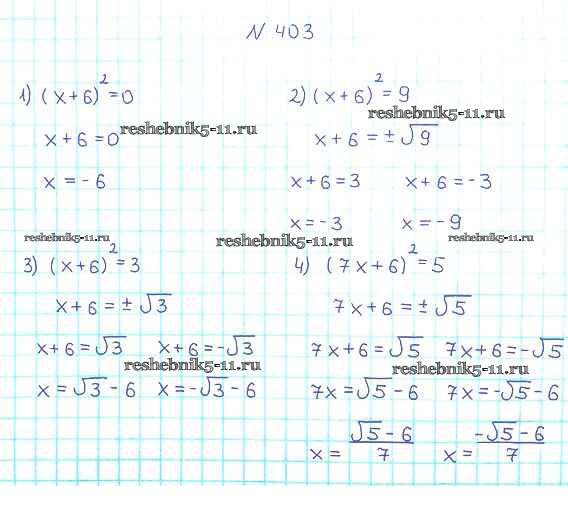 N 403
1) (x+6)² = 0
x+6 = 0
x = -6
2) (x+6)² = 9
x+6 = ±√9
x+6 = 3 x+6 = -3
x = -3 x = -9
3) (x+6)² = 3
x+6 = ±√3
x+6 = √3 x+6 = -√3
x = √3 - 6 x = -√3 - 6
4) (7x+6)² = 5
7x+6 = ±√5
7x+6 = √5 7x+6 = -√5
7x = √5 - 6 7x = -√5 - 6
x = (√5 - 6)/7 x = (-√5 - 6)/7
reshebnik5-11.ru
reshebnik5-11.ru
reshebnik5-11.ru
reshebnik5-11.ru
reshebnik5-11.ru
reshebnik5-11.ru
reshebnik5-11.ru